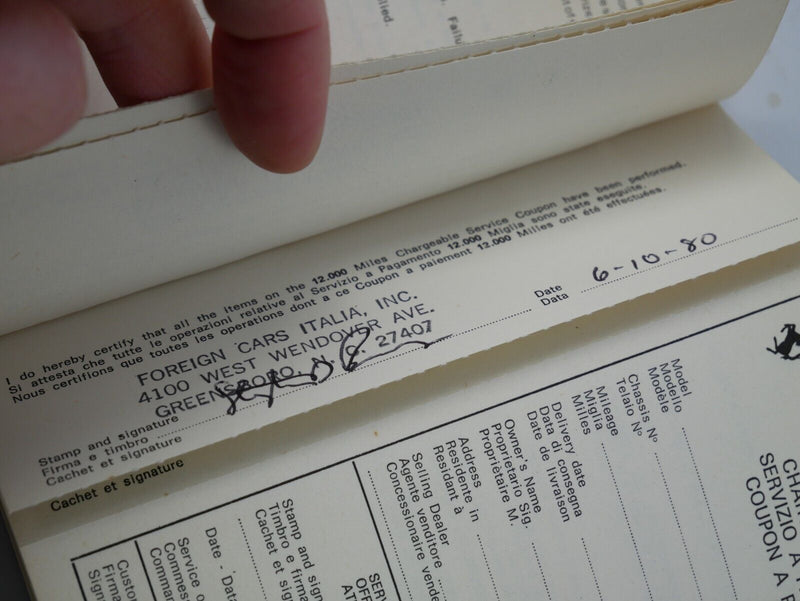 I do hereby certify that all the items on the 12.000 Miles Chargeable Service Coupon have been performed.
Si attesta che tutte le operazioni relative al Servizio a Pagamento 12.000 Miglia sono state eseguite.
Nous certifions que toutes les operations dont a ce Coupon a paiement 12.000 Milles ont été effectuées.
FOREIGN CARS ITALIA, INC.
4100 WEST WENDOVER AVE.
GREENSBORO, N. C. 27407
Date
Data
6-10-80
Stamp and signature
Firma e timbro
Cachet et signature
Cachet et signature
Model
Modello
Modèle
Chassis N°
Telaio N°
Mileage
Miglia
Milles
Delivery date
Data di consegna
Date de livraison
Owner's Name
Proprietario Sig.
Propriètaire M.
Address
Residente in
Residant à
Selling Dealer
Agente venditore
Concessionnaire
Stamp and
Timbro e firma
Cachet et
Date - Data
Service
SERVIZIO A
COUPON A